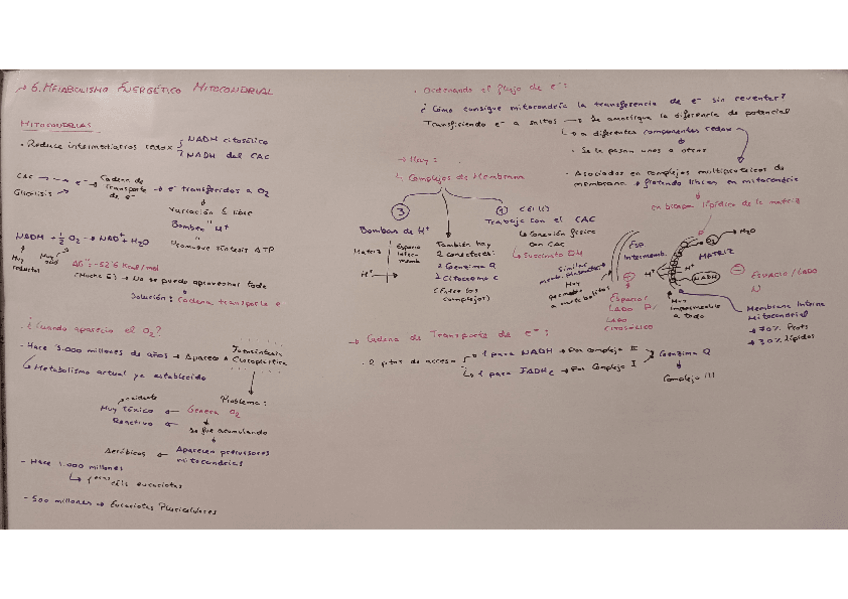 → 6. METABOLISMO ENERGÉTICO MITOCONDRIAL
MITOCONDRIAS
• Reduce intermediarios redox
NADH citosólico
NADH del CAC
CAC
Glicolisis
e⁻ → Cadena de Transporte de e⁻ → e⁻ transferidos a O₂
Variación E libre
Bomben H⁺
síntesis ATP
NADH + ½ O₂ → NAD⁺ + H₂O
Muy reductor
Muy oxid
ΔG°' = -52'6 Kcal/mol
(Mucha E) → No se puede aprovechar toda
Solución: Cadena transporte e⁻
• ¿Cuando apareció el O₂?
• Hace 3.000 millones de años → Aparece
Fotosíntesis
↳ Metabolismo actual ya establecido
Problema:
Genera O₂
oxidante
Muy tóxico
Reactivo
Se fue acumulando
Aparecen precursores mitocondrias
Aeróbicos
- Hace 1.000 millones
↳ 1ᵉʳᵃˢ céls eucariotas
- 500 millones → Eucariotas Pluricelulares
• Ordenando el flujo de e⁻s:
¿Cómo consigue mitocondria la transferencia de e⁻ sin reventar?
Transfiriendo e⁻ a saltos → Se amortigua la diferencia de potencial
↳ a diferentes componentes redox
• Se le pasan unos a otros
• Asociados en complejos multiproteicos de membrana → flotando libres en mitocondria
en bicapa lipídica de la matriz
→ Hay:
↳ Complejos de Membrana
③
Bombas de H⁺
Matriz
Espacio interm memb
H⁺
También hay 2 conectores:
2 Coenzima Q
2 Citocromo C
(Entre los complejos)
①
Trabaja con el CAC
↳ Conexión física con CAC
↳ Succinato DH
Similar memb. plasmática
Muy permeable a metabolitos
Esp Intermemb.
Espacio/
LADO P/
LADO CITOSÓLICO
O₂
H₂O
MATRIZ
H⁺
H⁺
NADH
Muy impermeable a todo
ESPACIO/LADO N
Membrana Interna Mitocondrial
→ 70% Prots
→ 30% lípidos
→ Cadena de Transporte de e⁻:
• 2 pitas de acceso
→ 1 para NADH → Por complejo II
↳ 1 para FADH₂ → Por Complejo I
Coenzima Q
Complejo III